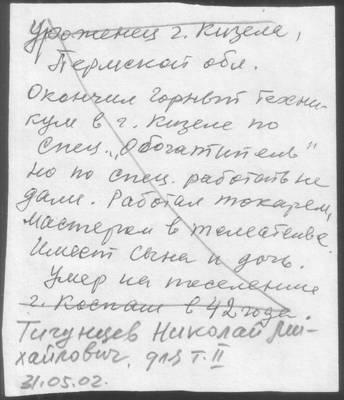 Уроженец г. Кизела,
Пермской обл.
Окончил Горный техни-
кум в г. Кизеле по
спец. „Обогатитель"
но по спец. работать не
дали. Работал токарем,
мастером в телеателье.
Имеет сына и дочь.
Умер на поселении
г. Коспаш в 42 года.
Тичунцев Николай Ми-
хайлович, для т. II
31.05.02.